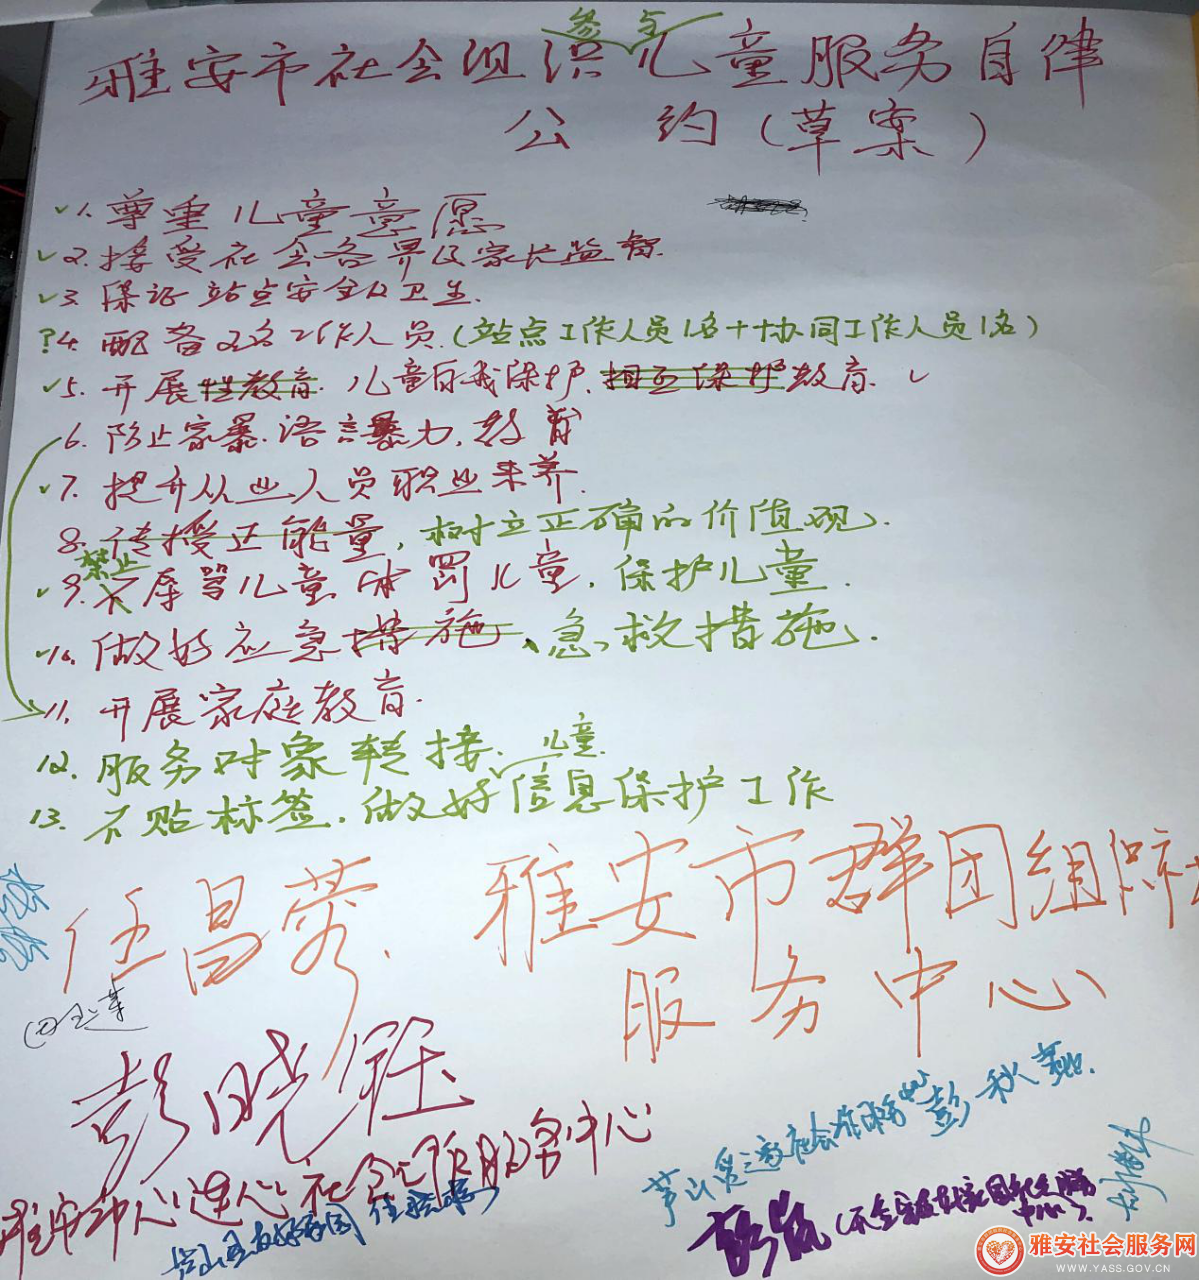 参与
雅安市社会组织儿童服务自律
公约(草案)
✓1.尊重儿童意愿
✓2.接受社会各界及家长监督.
✓3.保证站点安全及卫生.
?4.配备2名工作人员.(站点工作人员1名+协同工作人员1名)
✓5.开展性教育.儿童自我保护.相互保护教育.✓
6.防止家暴.语言暴力.教育
✓7.提升从业人员职业素养.
8.传授正能量,树立正确的价值观.
禁止
✓9.不辱骂儿童 体罚儿童.保护儿童.
✓10.做好应急措施、急救措施.
11.开展家庭教育.
12.服务对象转接.
儿童
13.不贴标签.做好信息保护工作
任昌蓉.雅安市群团组织
服务中心
彭晓钰
社会服务中心
彭秋
彭岚
雅安社会服务网
WWW.YASS.GOV.CN